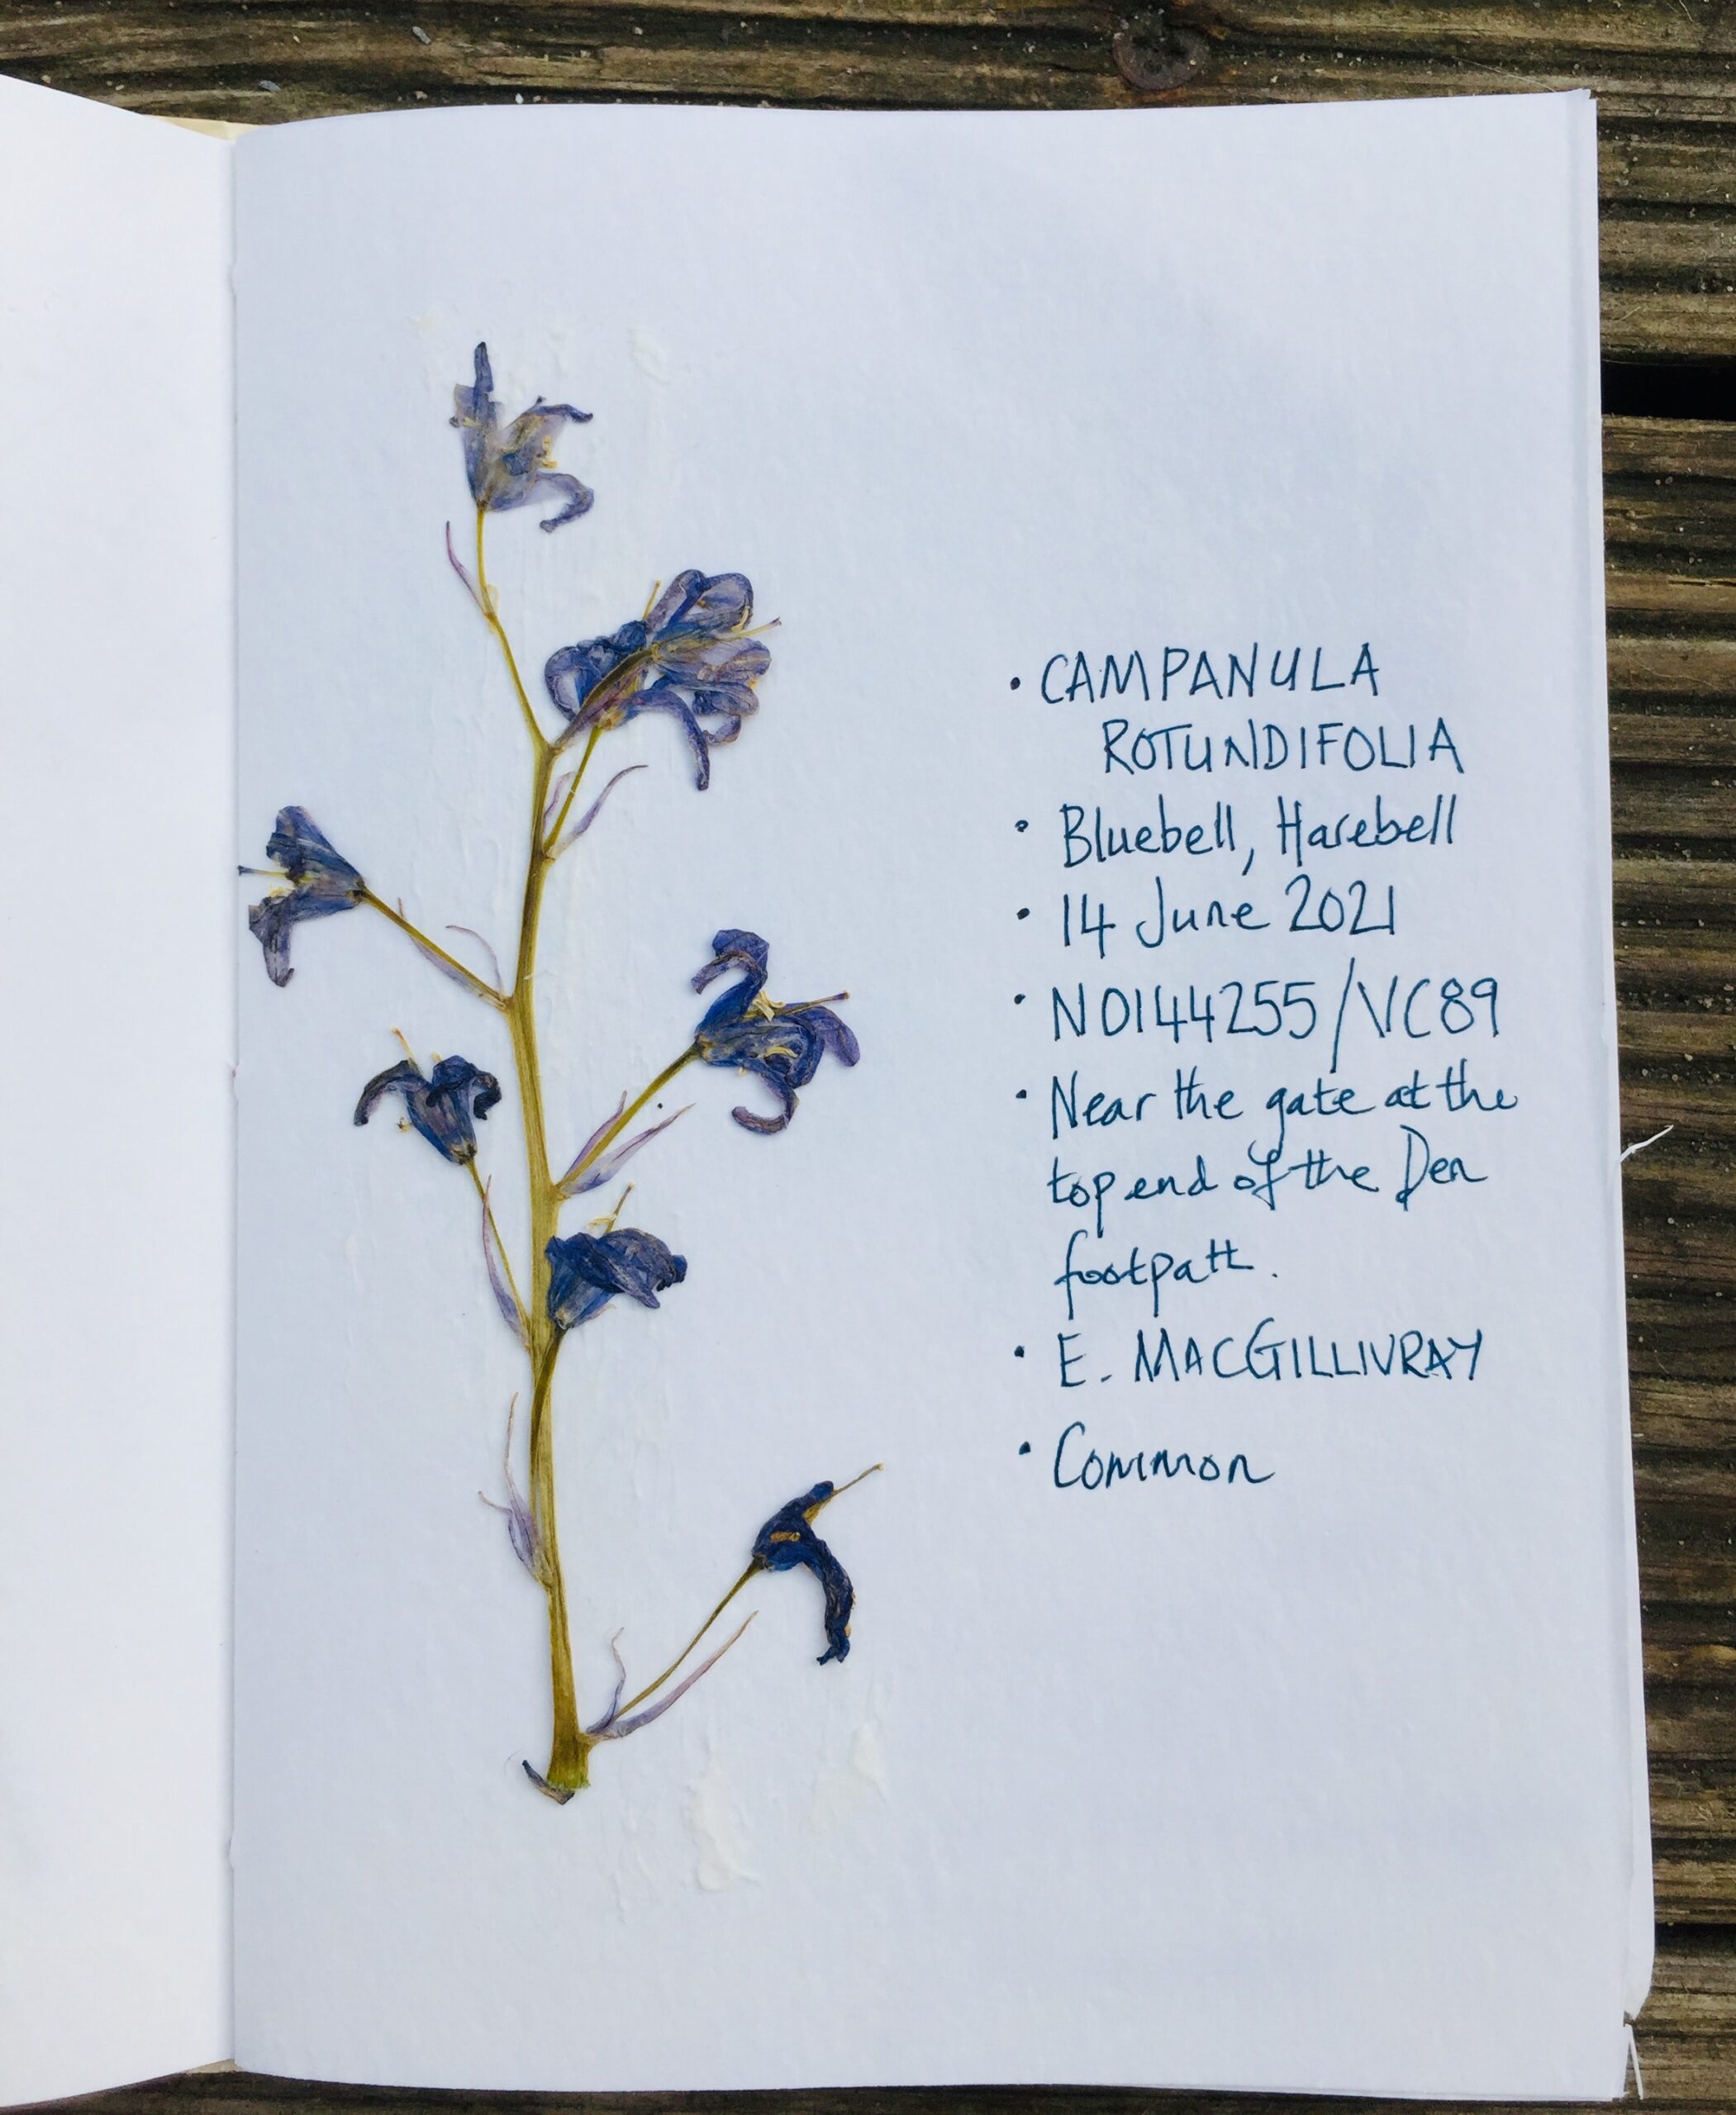 · CAMPANULA
ROTUNDIFOLIA
· Bluebell, Harebell
· 14 June 2021
· NO144255/VC89
· Near the gate at the
top end of the Den
footpath.
· E. MACGILLIVRAY
· Common